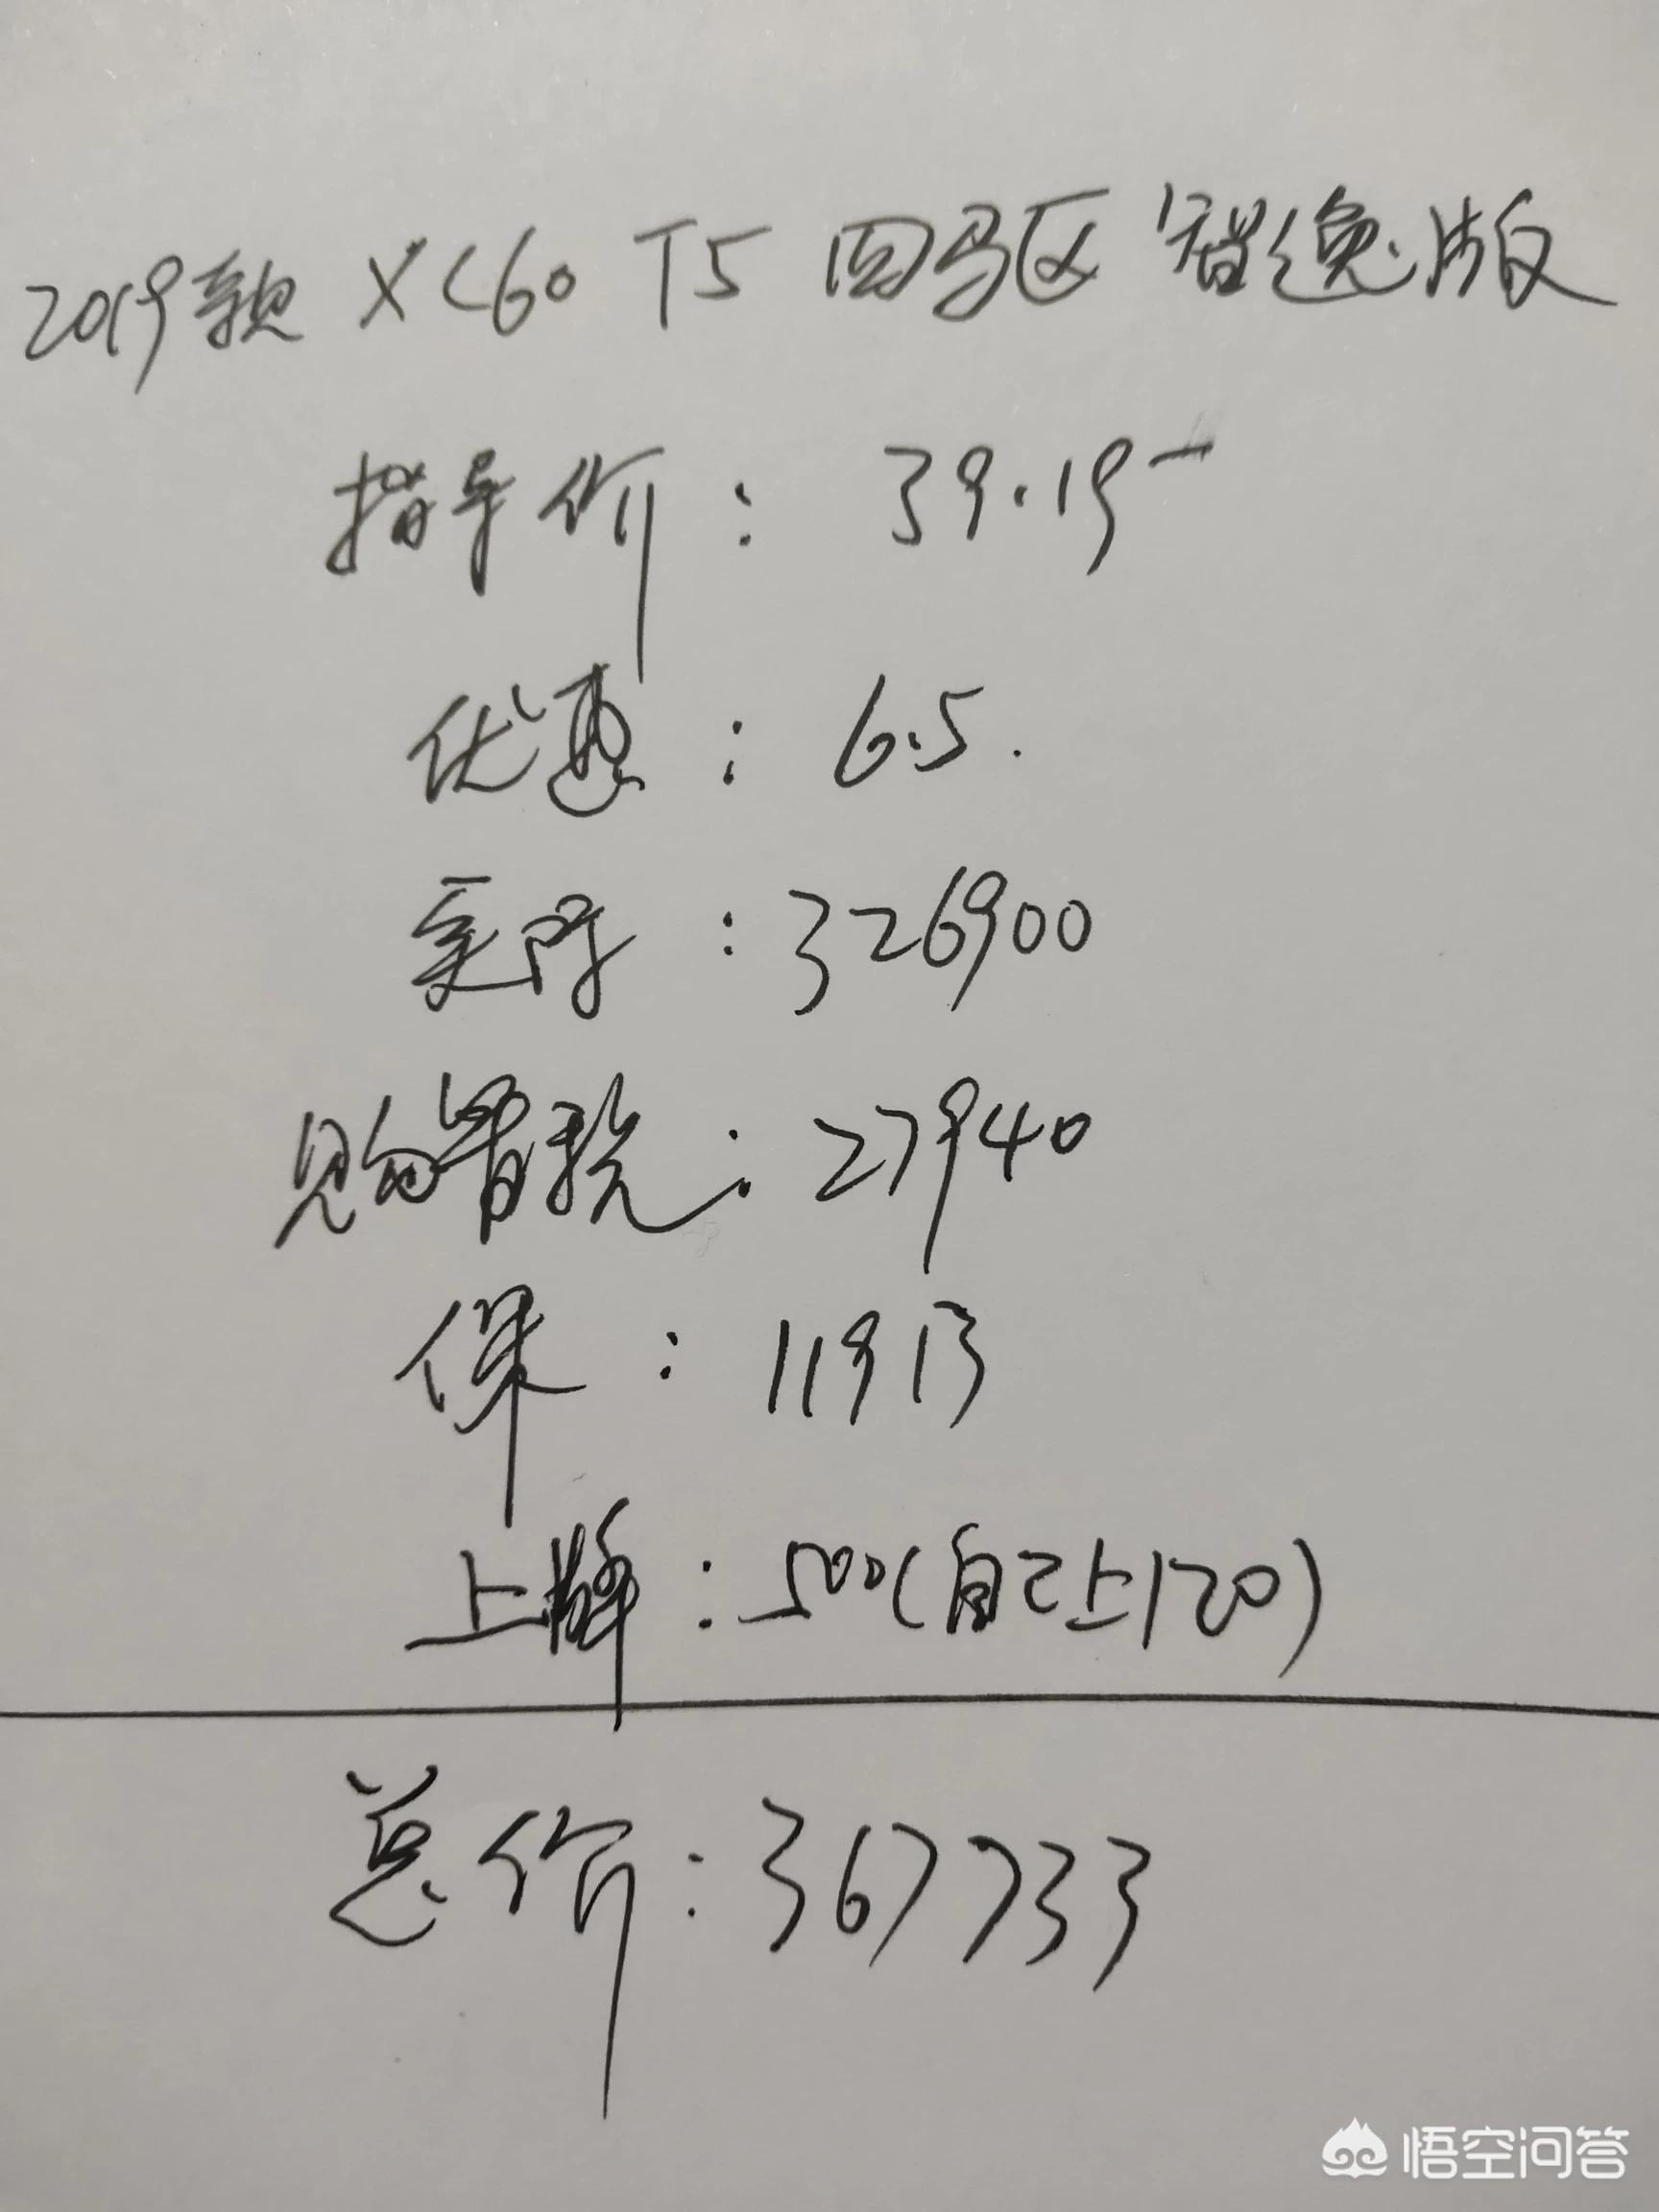 2019款 XC60 T5 四驱 智逸版
指导价：39.19
优惠：6.5.
实际：326900
购置税：27940
保：11913
上牌：500(自己上120)
总价：367733
悟空问答